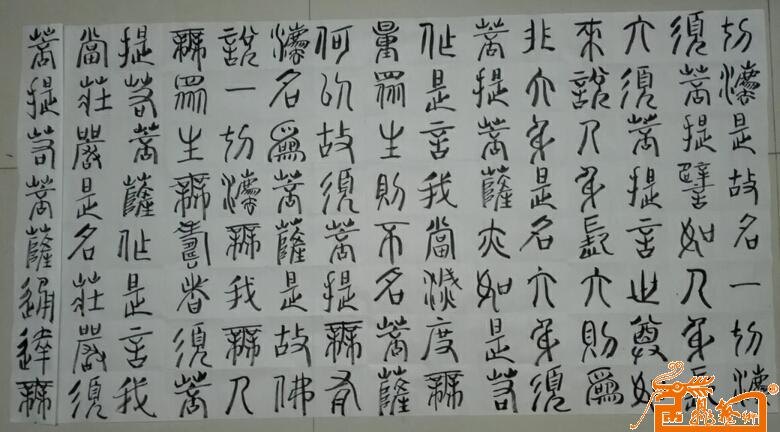 切法是故名一切法
須菩提譬如人身長
大須菩提言世尊如
來說人身長大則為
非大身是名大身須
菩提菩薩亦如是若
作是言我當滅度無
量眾生則不名菩薩
何以故須菩提無有
法名為菩薩是故佛
說一切法無我無人
無眾生無壽者須菩
提若菩薩作是言我
當莊嚴是名莊嚴須
菩提若菩薩通達無